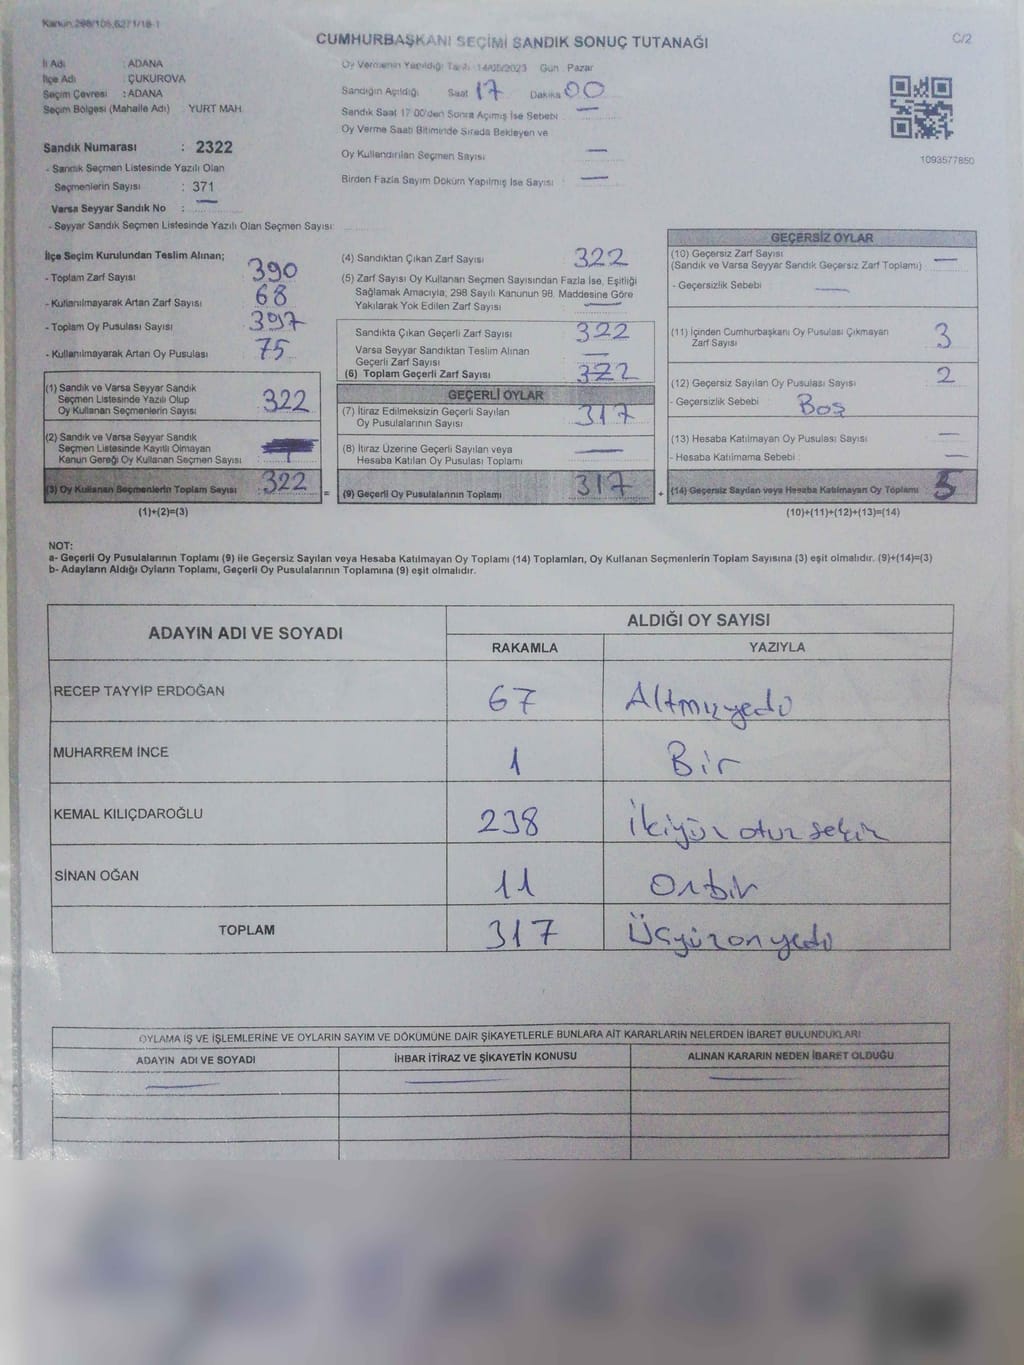 Kanun 298/105,6271/18-1
CUMHURBAŞKANI SEÇİMİ SANDIK SONUÇ TUTANAĞI
C/2
İl Adı : ADANA
İlçe Adı : ÇUKUROVA
Seçim Çevresi : ADANA
Seçim Bölgesi (Mahalle Adı) : YURT MAH.
Sandık Numarası : 2322
- Sandık Seçmen Listesinde Yazılı Olan
Seçmenlerin Sayısı : 371
Varsa Seyyar Sandık No : —
- Seyyar Sandık Seçmen Listesinde Yazılı Olan Seçmen Sayısı:
Oy Vermenin Yapıldığı Tarih 14/05/2023 Gün Pazar
Sandığın Açıldığı Saat 17 Dakika 00
Sandık Saat 17 00'den Sonra Açımış İse Sebebi —
Oy Verme Saati Bitiminde Sırada Bekleyen ve
Oy Kullandırılan Seçmen Sayısı —
Birden Fazla Sayım Döküm Yapılmış İse Sayısı —
1093577850
İlçe Seçim Kurulundan Teslim Alınan;
- Toplam Zarf Sayısı 390
- Kullanılmayarak Artan Zarf Sayısı 68
- Toplam Oy Pusulası Sayısı 397
- Kullanılmayarak Artan Oy Pusulası 75
(1) Sandık ve Varsa Seyyar Sandık
Seçmen Listesinde Yazılı Olup
Oy Kullanan Seçmenlerin Sayısı 322
(2) Sandık ve Varsa Seyyar Sandık
Seçmen Listesinde Kayıtlı Olmayan
Kanun Gereği Oy Kullanan Seçmen Sayısı
(3) Oy Kullanan Seçmenlerin Toplam Sayısı : 322
(1)+(2)=(3)
(4) Sandıktan Çıkan Zarf Sayısı 322
(5) Zarf Sayısı Oy Kullanan Seçmen Sayısından Fazla İse, Eşitliği
Sağlamak Amacıyla, 298 Sayılı Kanunun 98. Maddesine Göre
Yakılarak Yok Edilen Zarf Sayısı —
Sandıkta Çıkan Geçerli Zarf Sayısı 322
Varsa Seyyar Sandıktan Teslim Alınan
Geçerli Zarf Sayısı —
(6) Toplam Geçerli Zarf Sayısı 322
GEÇERLİ OYLAR
(7) İtiraz Edilmeksizin Geçerli Sayılan
Oy Pusulalarının Sayısı 317
(8) İtiraz Üzerine Geçerli Sayılan veya
Hesaba Katılan Oy Pusulası Toplamı —
= (9) Geçerli Oy Pusulalarının Toplamı 317
GEÇERSİZ OYLAR
(10) Geçersiz Zarf Sayısı
(Sandık ve Varsa Seyyar Sandık Geçersiz Zarf Toplamı) —
- Geçersizlik Sebebi —
(11) İçinden Cumhurbaşkanı Oy Pusulası Çıkmayan
Zarf Sayısı 3
(12) Geçersiz Sayılan Oy Pusulası Sayısı 2
- Geçersizlik Sebebi Boş
(13) Hesaba Katılmayan Oy Pusulası Sayısı —
- Hesaba Katılmama Sebebi : —
+ (14) Geçersiz Sayılan veya Hesaba Katılmayan Oy Toplamı 5
(10)+(11)+(12)+(13)=(14)
NOT:
a- Geçerli Oy Pusulalarının Toplamı (9) ile Geçersiz Sayılan veya Hesaba Katılmayan Oy Toplamı (14) Toplamları, Oy Kullanan Seçmenlerin Toplam Sayısına (3) eşit olmalıdır. (9)+(14)=(3)
b- Adayların Aldığı Oyların Toplamı, Geçerli Oy Pusulalarının Toplamına (9) eşit olmalıdır.
ADAYIN ADI VE SOYADI
ALDIĞI OY SAYISI
RAKAMLA YAZIYLA
RECEP TAYYİP ERDOĞAN 67 Altmışyedi
MUHARREM İNCE 1 Bir
KEMAL KILIÇDAROĞLU 238 İkiyüz otuz sekiz
SİNAN OĞAN 11 Onbir
TOPLAM 317 Üçyüzonyedi
OYLAMA İŞ VE İŞLEMLERİNE VE OYLARIN SAYIM VE DÖKÜMÜNE DAİR ŞİKAYETLERLE BUNLARA AİT KARARLARIN NELERDEN İBARET BULUNDUKLARI
ADAYIN ADI VE SOYADI İHBAR İTİRAZ VE ŞİKAYETİN KONUSU ALINAN KARARIN NEDEN İBARET OLDUĞU
— — —